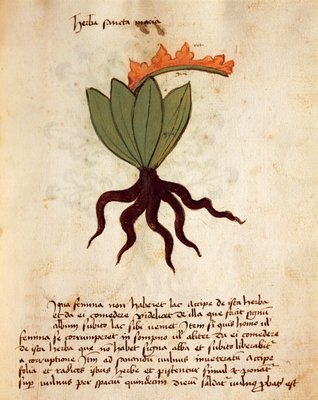 Herba sancta maria
Si qua femina non haberet lac accipe de ista herba
et da ei comedere videlicet de illa que facit signum
album subito lac sibi venet Item si quis homo ul
femina se corrumperet in sompnis ul aliter da ei comedere
de ista herba que no habet signa alba et subito liberabit
a corruptione Item ad sanandum vulnus inveteratu accipe
folia et radices istius herbe et pistentur simul et ponat
sup vulnus per spaciu quindecim dieru saldat vulnus pbatu est